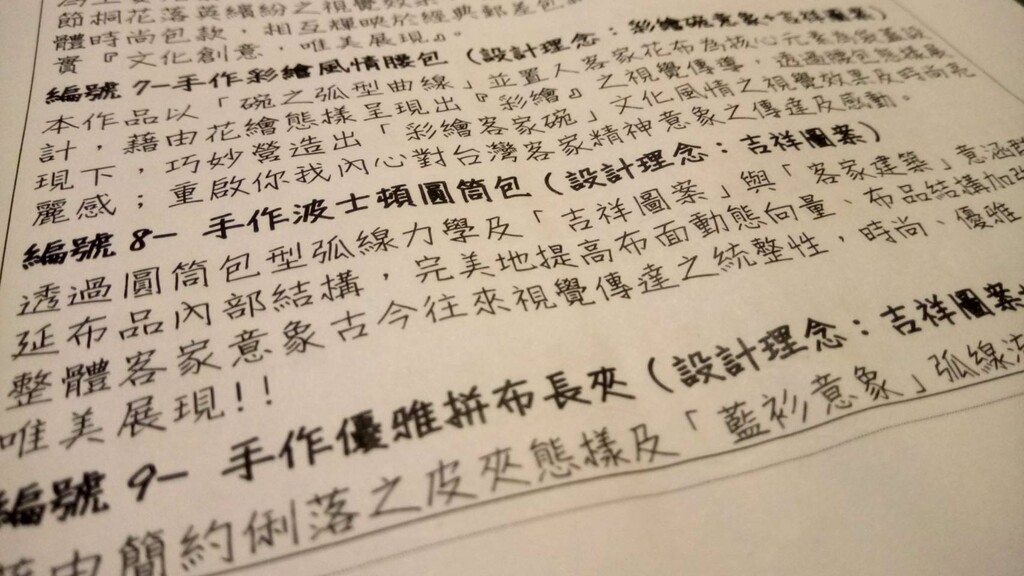 節桐花落英繽紛之視覺效果
體時尚包款，相互輝映於經典郵差包
實『文化創意，唯美展現』。
編號 7—手作彩繪風情腰包（設計理念：彩繪碗意象+吉祥圖案）
本作品以「碗之弧型曲線」並置入客家花布為核心元素為袋蓋設
計，藉由花繪態樣呈現出『彩繪』之視覺傳導，透過腰包
現下，巧妙營造出「彩繪客家碗」文化風情之視覺效果及時尚亮
麗感；重啟你我內心對台灣客家精神意象之傳達及感動。
編號 8— 手作波士頓圓筒包（設計理念：吉祥圖案）
透過圓筒包型弧線力學及「吉祥圖案」與「客家建築」意涵
延布品內部結構，完美地提高布面動態向量、布品結構加強
整體客家意象古今往來視覺傳達之統整性，時尚、優雅
唯美展現!!
編號 9— 手作優雅拼布長夾（設計理念：吉祥圖案
藉由簡約俐落之皮夾態樣及「藍衫意象」弧線流